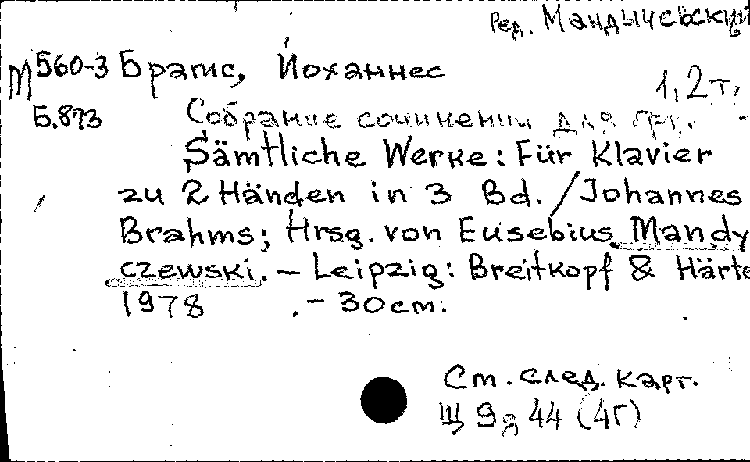 Ред. Мандычевский
М 560-3 Брамс, Йоханнес
1, 2 т.
Б.873 Собрание сочинений для фп.
Sämtliche Werke: Für Klavier
zu 2 Händen in 3 Bd. / Johannes
Brahms; Hrsg. von Eusebius Mandy
czewski. – Leipzig: Breitkopf & Härte
1978 . – 30 cm.
Ст. след. карт.
Щ 9 44 (4Г)